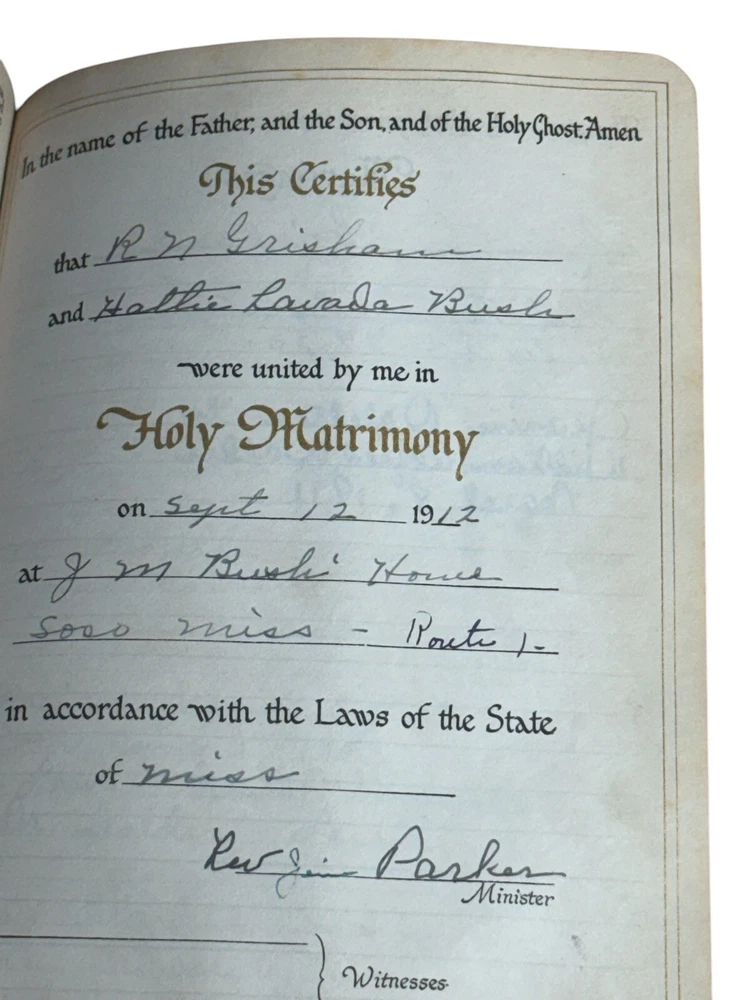 In the name of the Father, and the Son, and of the Holy Ghost. Amen
This Certifies
that R N Grisham
and Hattie Lavada Bush
were united by me in
Holy Matrimony
on Sept 12 1912
at J M Bush' Home
Soso Miss - Route 1-
in accordance with the Laws of the State
of Miss
Rev Jim Parker
Minister
Witnesses